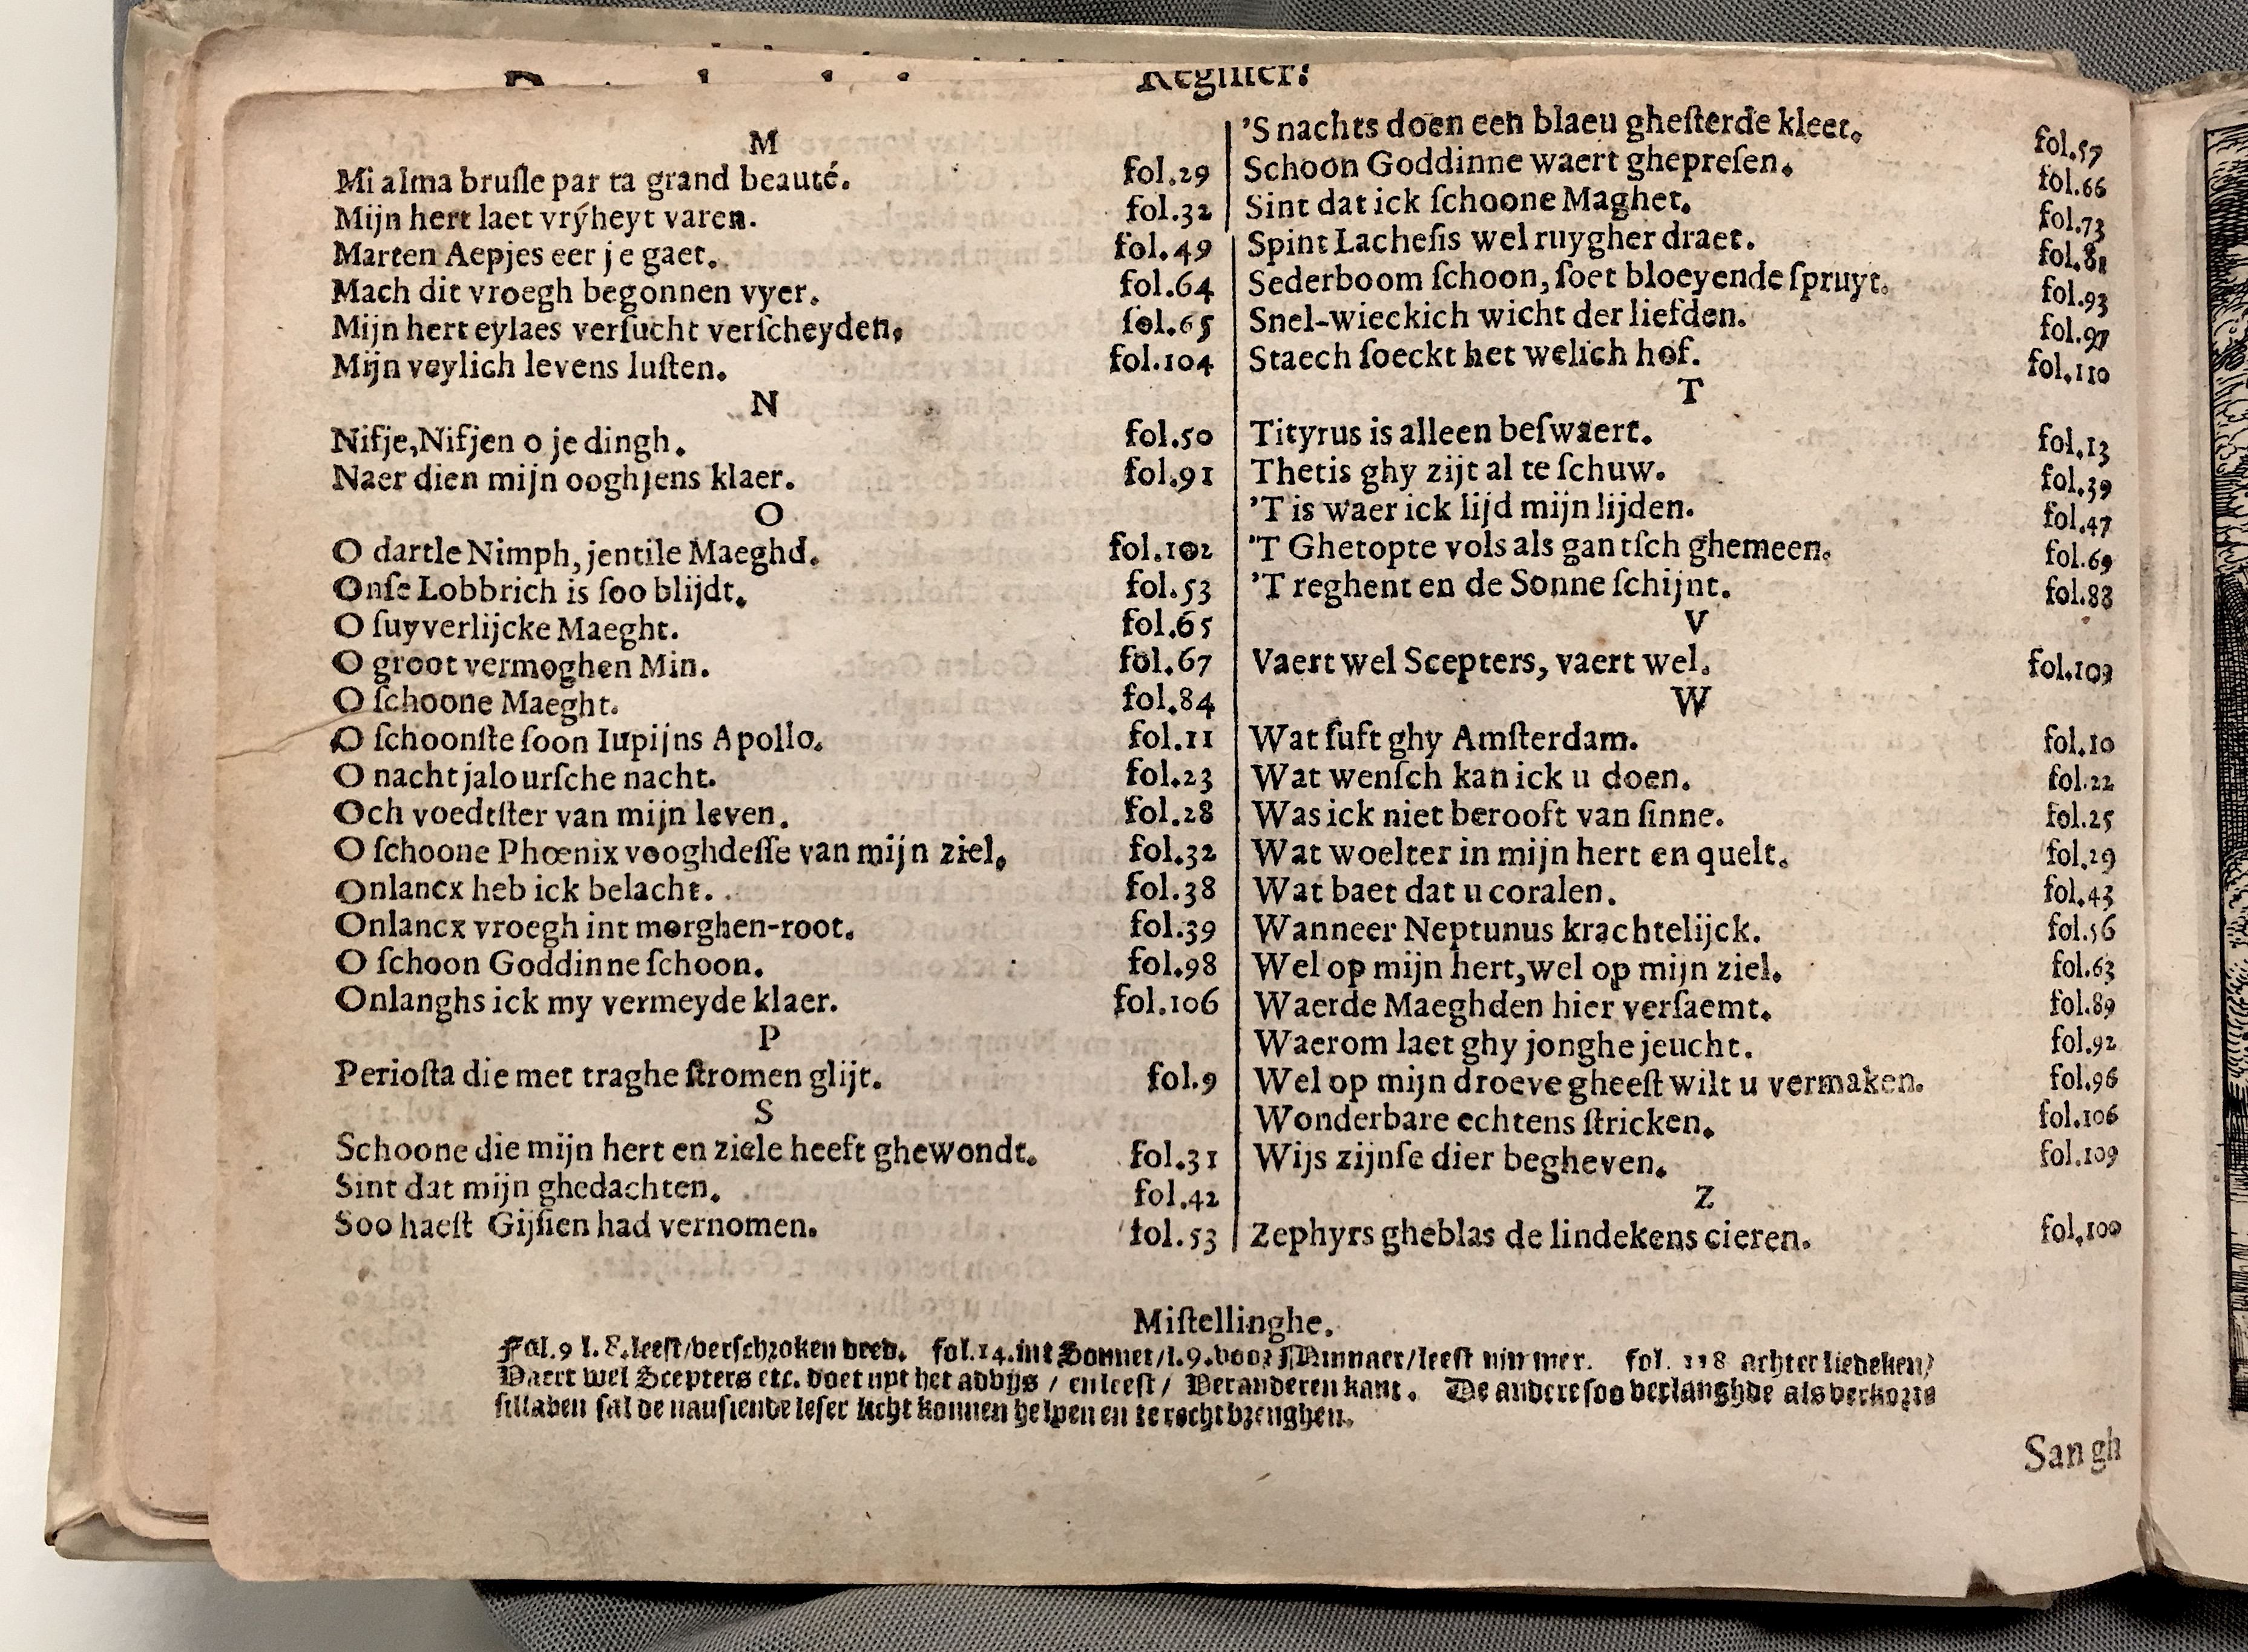 Register.
M
Mi alma bruſle par ta grand beauté. fol.29
Mijn hert laet vrýheyt varen. fol.32
Marten Aepjes eer je gaet. fol.49
Mach dit vroegh begonnen vyer. fol.64
Mijn hert eylaes verſucht verſcheyden. fol.65
Mijn veylich levens luſten. fol.104
N
Nifje,Nifjen o je dingh. fol.50
Naer dien mijn ooghjens klaer. fol.91
O
O dartle Nimph, jentile Maeghd. fol.102
Onſe Lobbrich is ſoo blijdt. fol.53
O ſuyverlijcke Maeght. fol.65
O groot vermoghen Min. fol.67
O ſchoone Maeght. fol.84
O ſchoonſte ſoon Iupijns Apollo. fol.11
O nacht jalourſche nacht. fol.23
Och voedtſter van mijn leven. fol.28
O ſchoone Phœnix vooghdeſſe van mijn ziel. fol.32
Onlancx heb ick belacht. fol.38
Onlancx vroegh int morghen-root. fol.39
O ſchoon Goddinne ſchoon. fol.98
Onlanghs ick my vermeyde klaer. fol.106
P
Perioſta die met traghe ſtromen glijt. fol.9
S
Schoone die mijn hert en ziele heeft ghewondt. fol.31
Sint dat mijn ghedachten. fol.42
Soo haeſt Gijſien had vernomen. fol.53
'S nachts doen een blaeu gheſterde kleet. fol.57
Schoon Goddinne waert ghepreſen. fol.66
Sint dat ick ſchoone Maghet. fol.73
Spint Lacheſis wel ruygher draet. fol.81
Sederboom ſchoon, ſoet bloeyende ſpruyt. fol.93
Snel-wieckich wicht der liefden. fol.97
Staech ſoeckt het welich hof. fol.110
T
Tityrus is alleen beſwaert. fol.13
Thetis ghy zijt al te ſchuw. fol.39
'T is waer ick lijd mijn lijden. fol.47
'T Ghetopte vols als gantſch ghemeen. fol.69
'T reghent en de Sonne ſchijnt. fol.88
V
Vaert wel Scepters, vaert wel. fol.103
W
Wat ſuft ghy Amſterdam. fol.10
Wat wenſch kan ick u doen. fol.22
Was ick niet berooft van ſinne. fol.25
Wat woelter in mijn hert en quelt. fol.29
Wat baet dat u coralen. fol.43
Wanneer Neptunus krachtelijck. fol.56
Wel op mijn hert,wel op mijn ziel. fol.63
Waerde Maeghden hier verſaemt. fol.89
Waerom laet ghy jonghe jeucht. fol.92
Wel op mijn droeve gheeſt wilt u vermaken. fol.96
Wonderbare echtens ſtricken. fol.106
Wijs zijnſe dier begheven. fol.109
Z
Zephyrs gheblas de lindekens cieren. fol.100
Miſtellinghe.
Fol.9 l. 8.leeſt/verſchroken deed. fol.14.int Sonnet/l.9.voor Minnaer/leeſt nimmer. fol. 118 achter liedeken/
Vaert wel Scepters etc. doet uyt het advijs / en leeſt / Veranderen kant. De andere ſoo verlanghde als verkorte
ſillaben ſal de nauſiende leſer licht konnen helpen en te recht brenghen.
Sangh